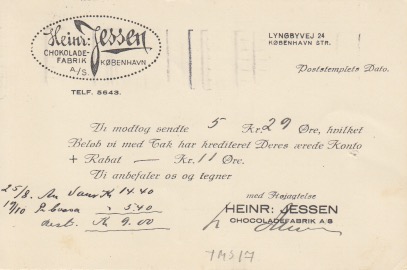 Heinr: Jessen
CHOKOLADE-
FABRIK
A/S
KØBENHAVN
TELF. 5643.
LYNGBYVEJ 24
KØBENHAVN STR.
Poststemplets Dato.
Vi modtog sendte 5 Kr. 29 Øre, hvilket
Beløb vi med Tak har krediteret Deres ærede Konto
+ Rabat — Kr. 11 Øre.
Vi anbefaler os og tegner
med Højagtelse
HEINR: JESSEN
CHOCOLADEFABRIK A/S
25/8. An Varer Kr 14.40
19/10 5.40
Kr 9.00